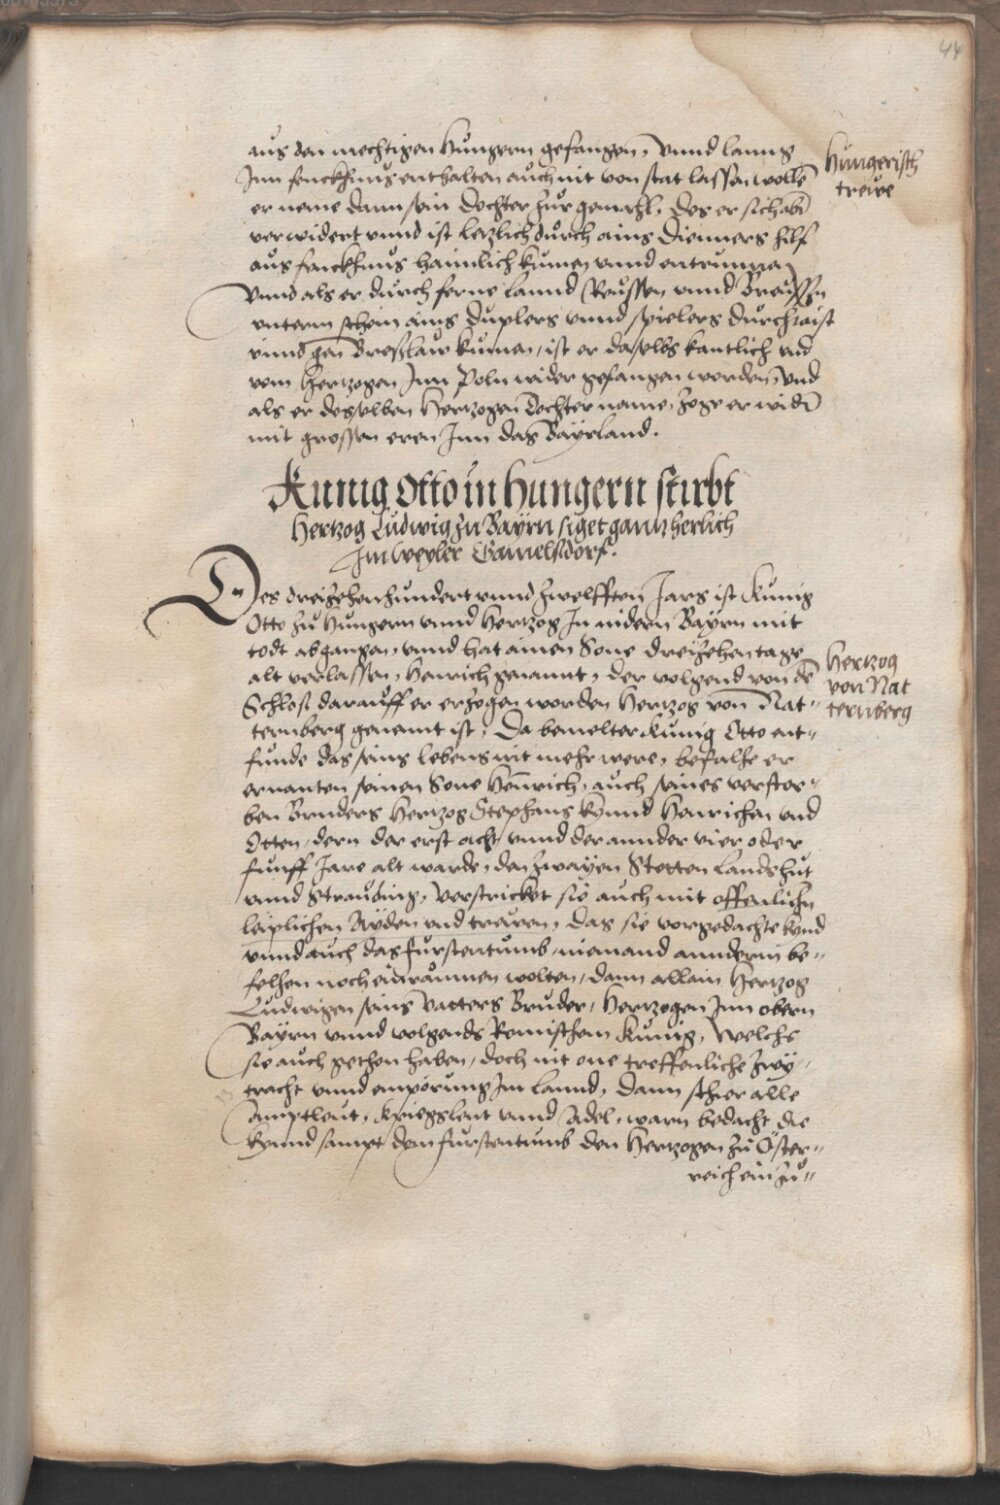 44
aus den mechtigen Hungern gefangen, vnnd lanng
Inn fenckhnus enthalten auch nit von stat lassen wollē
er neme dann sein Dochter zur gemahl, des er sich abī
verwidert vnnd ist letzlich durch ains Dienners hilf
aus fenckhnus haimlich kumen vnnd entrunnen
Vnnd als er durch ferne lannd Reussen vnnd Preussen
vnterm schein ains Duplers vnnd spielers durchraist
vnnd gen Breßlaw kumen, ist er daselbs kantlich vnd
vom Hertzogen Inn Poln wider gefangen worden, Vnd
als er desselben Hertzogen Dochter name, zoge er widī
mit grossen eren Inn das Bayrland.
Hungerisch
trewe
Kunig Otto in Hungern stirbt
Hertzog Ludwig zu Bayrn siget gantz herlich
Im weyler Gamelsdorf.
Des dreizehenhundert vnnd zwelfften Jars ist Kunig
Otto zu Hungern vnnd Hertzog In nidern Bayrn mit
todt abgangen, vnnd hat ainen Sone dreizehen tage
alt verlassen, Henrich genannt, der volgend von dē
Schloß darauff er erzogen worden Hertzog von Nat-
ternberg genennt ist, Da bemelter Kunig Otto ent-
funde das seins lebens nit mehr were, befalhe er
ernanten seinen Sone Henrich, auch seines verstor-
ben Bruders Hertzog Stephans kynnd Henrichen vnd
Otten, dern der erst acht vnnd der annder vier oder
funff Jare alt warde, den zwayen Stetten Landshut
vnnd Straubing, Verstricket sie auch mit offenlichn
leiplichen Ayden vnd trewen, das sie vorgedachte kynd
vnnd auch das furstentumb, niemand annderm be-
felhen noch einraumen wolten, dann allain Hertzog
Ludwigen seins Vatters Bruder, Hertzogen Inn obern
Bayrn vnnd volgends Romischem Kunig, Welchs
sie auch gethon haben, doch nit one treffenliche zwy-
tracht vnnd emporung Im lannd, Dann schier alle
Amptleut, kriegsleut vnnd Adel, warn bedacht die
kynnd sampt dem furstentumb den Hertzogen zu Öster-
reich ein zu-
Hertzog
von Nat
ternberg